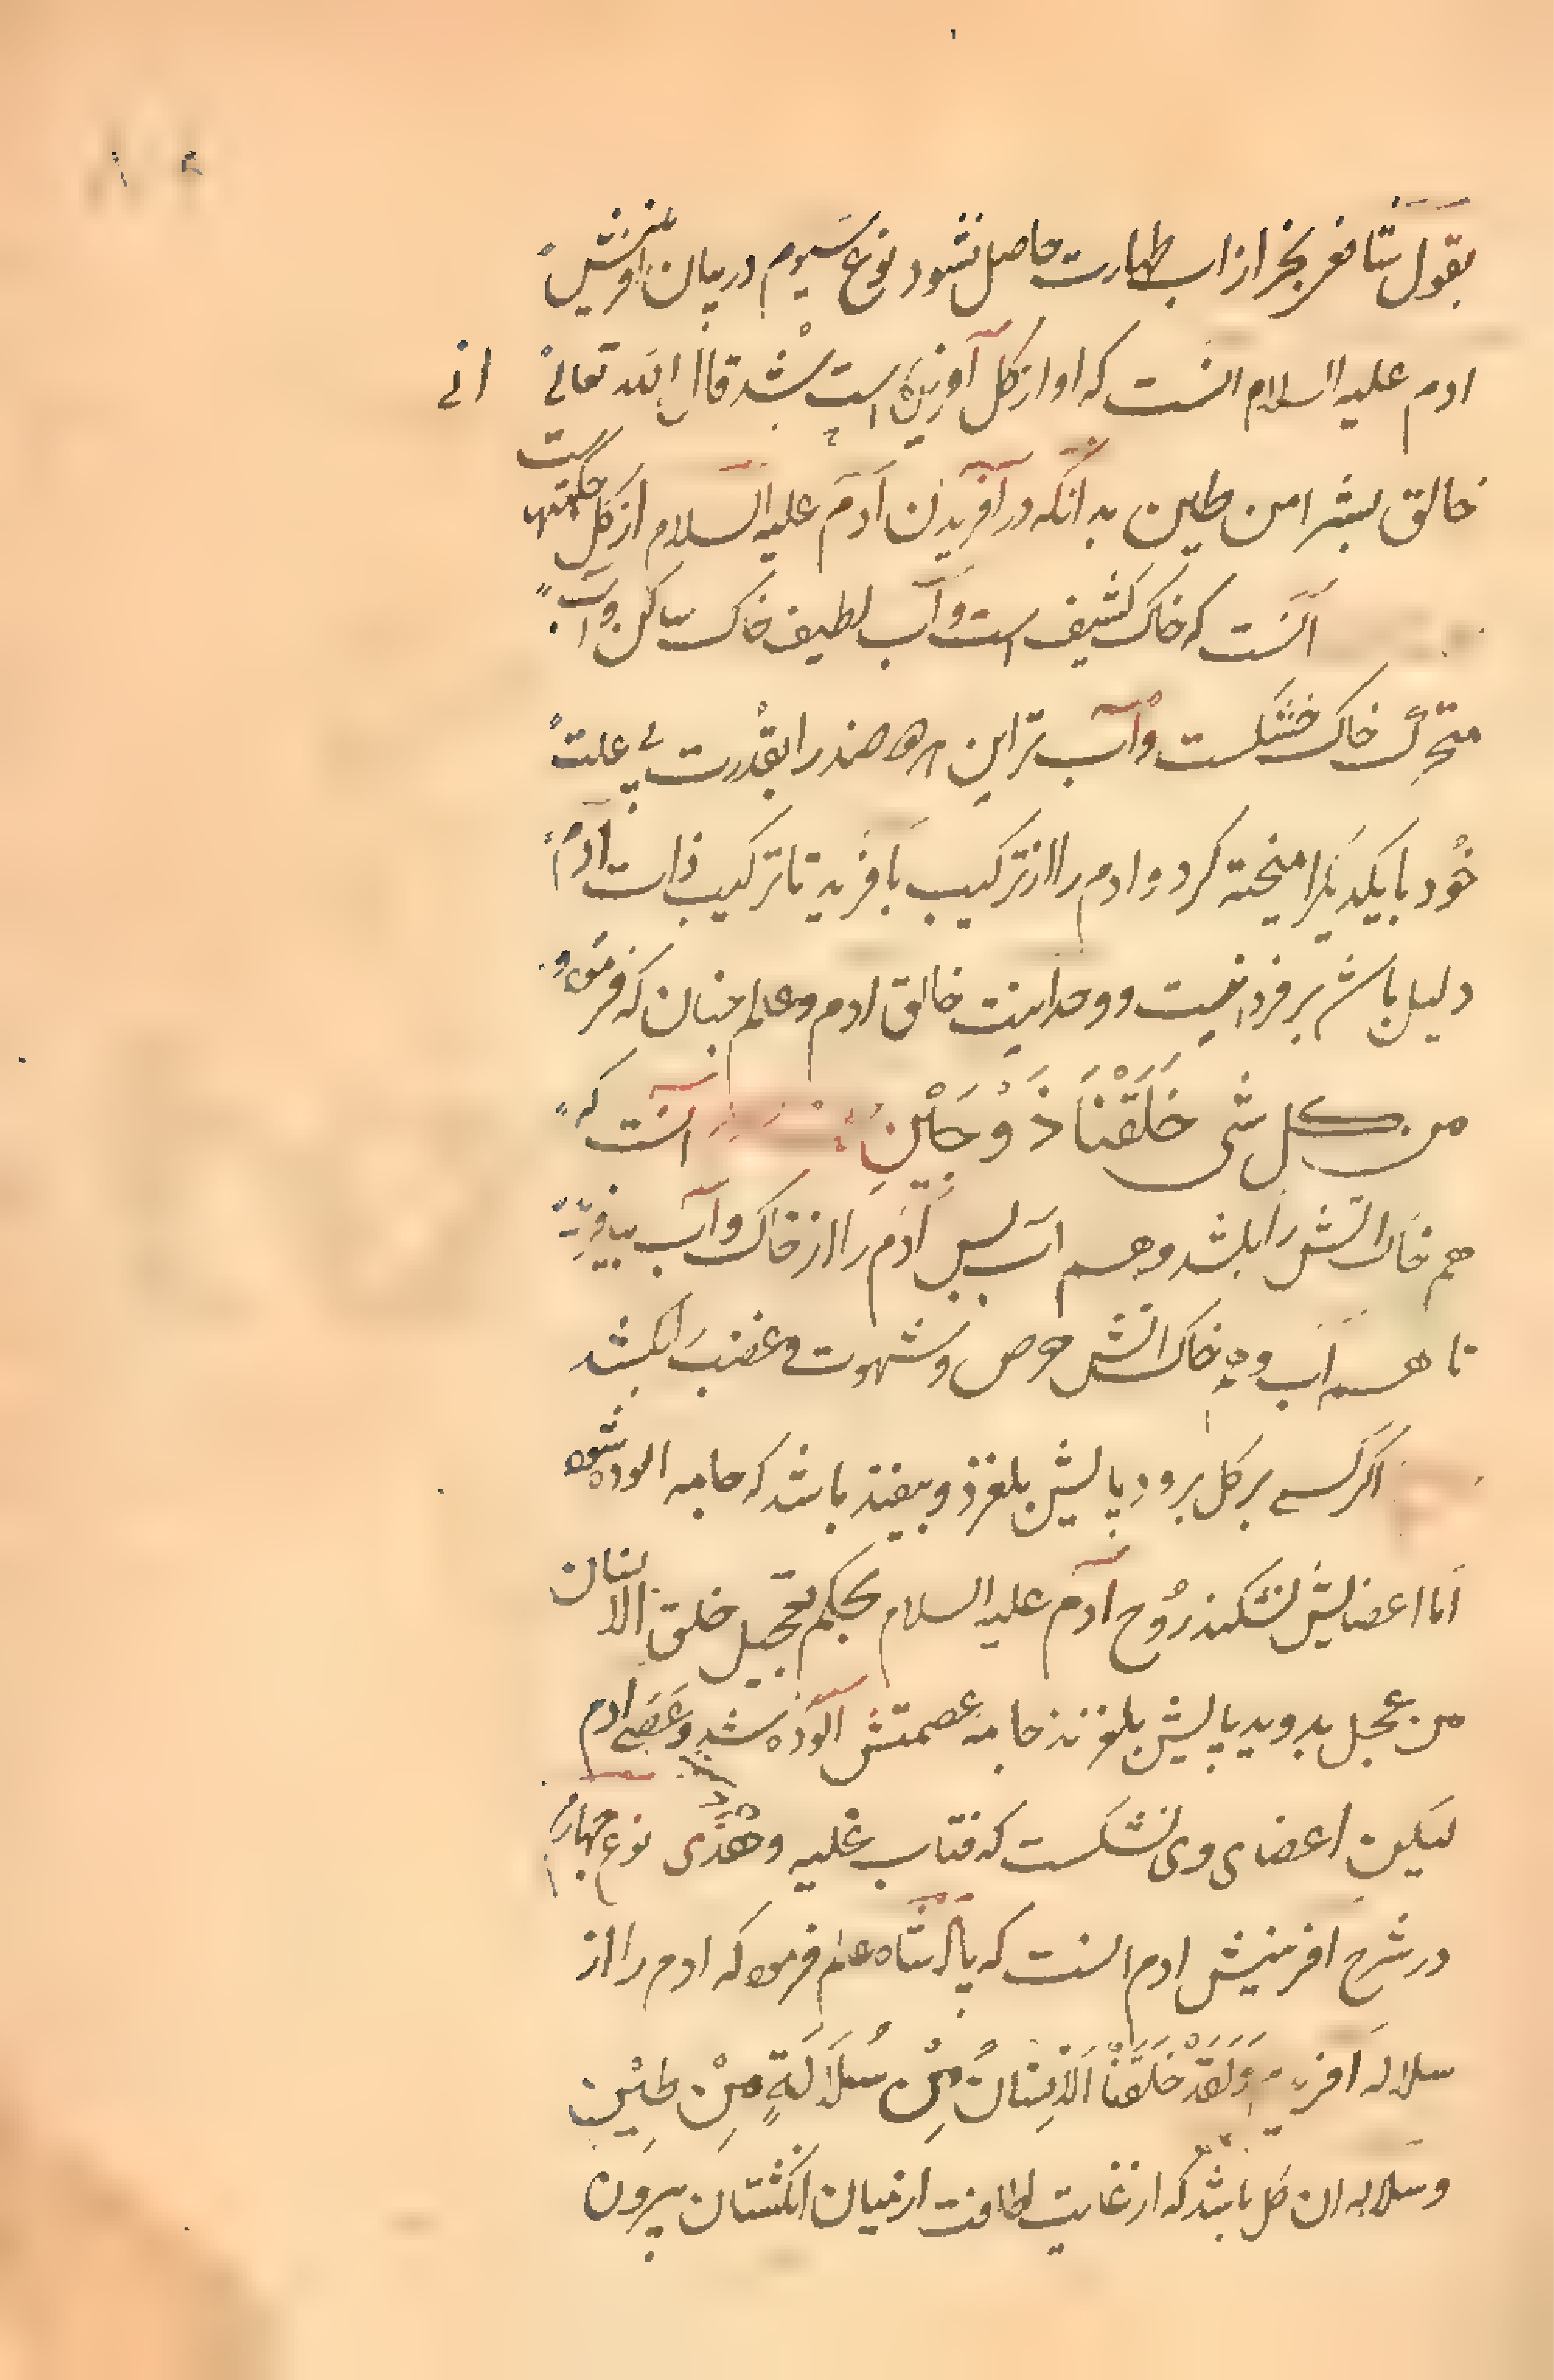 بقول شافعی بجز از اب طهارت حاصل نشود نوع سیوم در بیان افرینش
ادم علیه السلام انست که او از کل آفریده است شد قال الله تعالی انی
خالق بشرا من طین بدانکه در آفریدن آدم علیه السلام از کل حکمت
آنست که خاک کثیف است و آب لطیف خاک ساکن و آب
متحرک خاک خشکست و آب تر این هر دو ضد را بقدرت بی علت
خود با یکدیگر امیخته کرد و ادم را از ترکیب بافرید تا ترکیب ذات ادم
دلیل باشد بر فردانیت و وحدانیت خالق ادم و عالم چنان که فرمود
من كل شی خَلَقْنَا زَوْجَيْنِ آنست که
هم خاک اتش را بکشد و هم آب پس آدم را از خاک و آب بیافرید
تا هم آب و هم خاک اتش حرص و شهوت و غضب را بکشد
اگر کسی بر کل برود پایش بلغزد و بیفتد باشد که جامه الوده شود
اما اعضایش نشکند روح آدم علیه السلام بحکم تعجیل خلق الانسان
من عجل بدوید پایش بلغزید جامه عصمتش آلوده شد و عصی ادم
لیکن اعضای وی نشکست که فتاب علیه و هدی نوع چهارم
در شرح افرینش ادم انست که پادشاه عالم فرمود که ادم را از
سلاله افریدم وَلَقَدْ خَلَقْنَا الْاِنْسَانَ مِنْ سُلَالَةٍ مِنْ طِيْنٍ
و سلاله ان کل باشد که از غایت لطافت از میان انکشتان بیرون